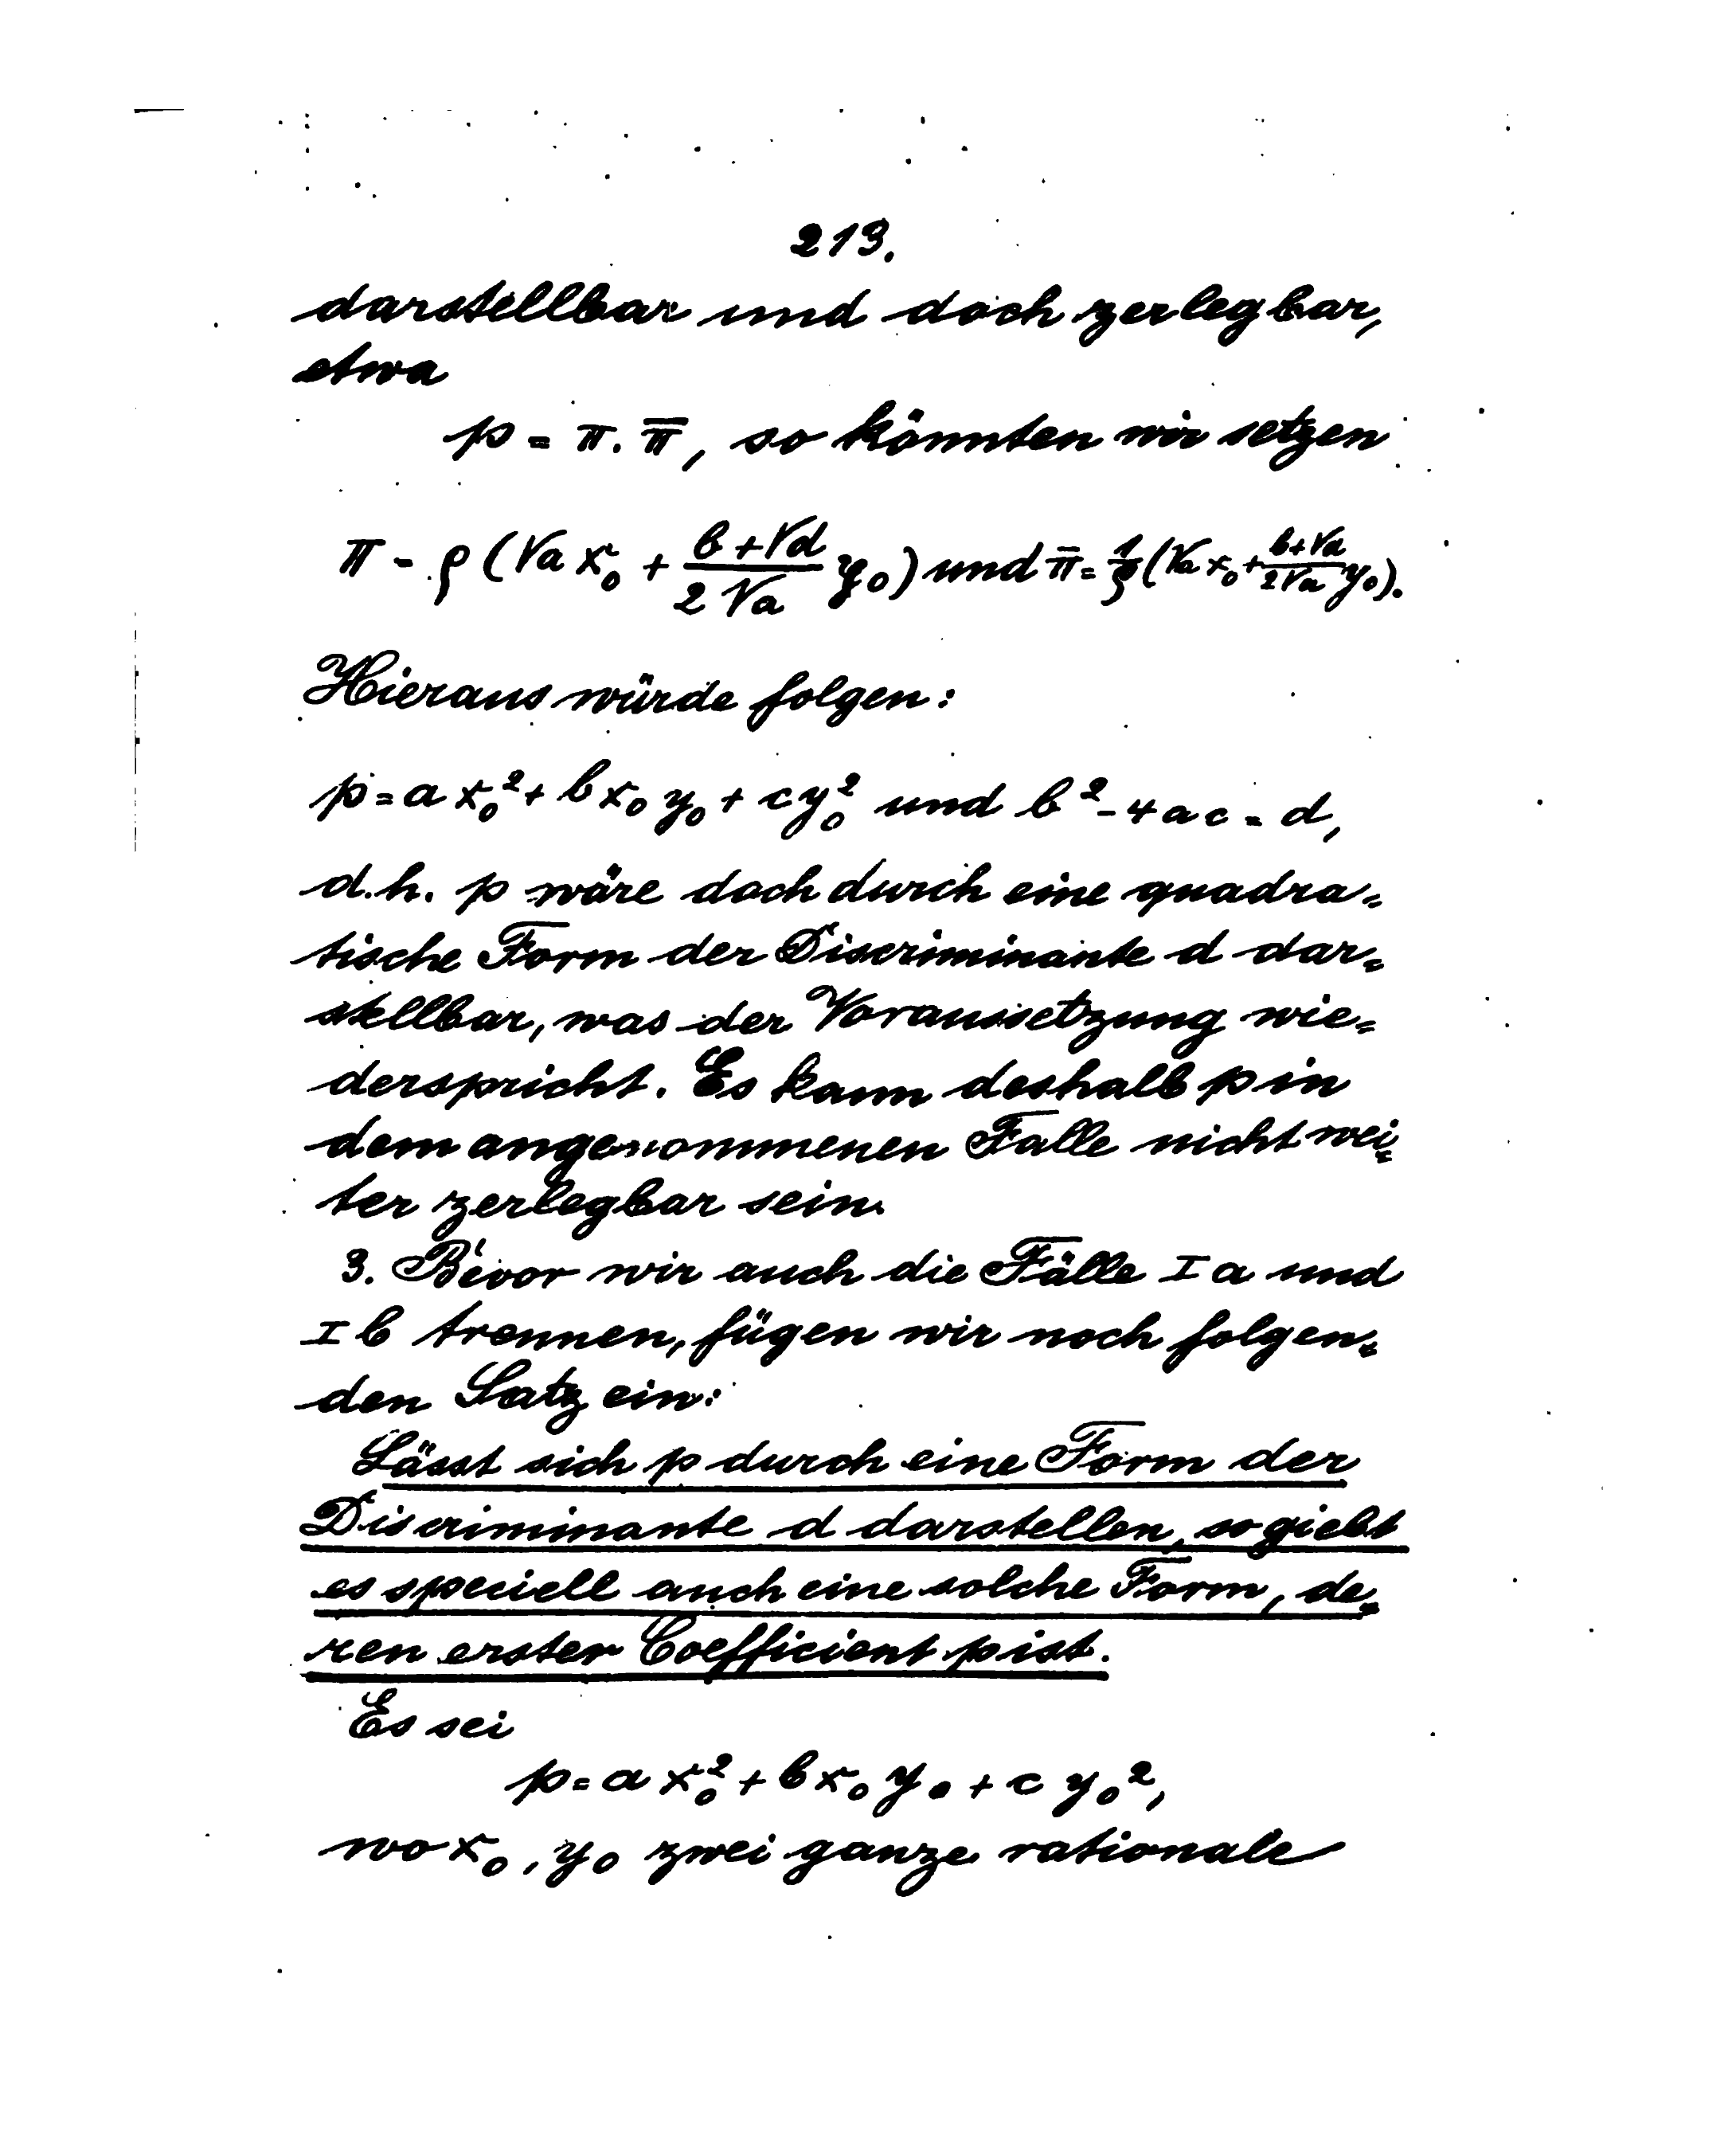 213.
darstellbar und doch zerlegbar,
etwa
p = π. π̅, so könnten wir setzen
π = ρ (√a x₀ + (b+√d)/(2√a) y₀) und π̅ = 1/ρ (√a x₀ + (b+√d)/(2√a) y₀).
Hieraus würde folgen:
p = a x₀² + b x₀ y₀ + c y₀² und b² - 4ac = d,
d.h. p wäre doch durch eine quadra=
tische Form der Discriminante d dar=
stellbar, was der Voraussetzung wie=
derspricht. Es kann deshalb p in
dem angenommenen Falle nicht wei=
ter zerlegbar sein.
3. Bevor wir auch die Fälle I a und
I b trennen, fügen wir noch folgen=
den Satz ein:
Lässt sich p durch eine Form der
Discriminante d darstellen, so giebt
es speciell auch eine solche Form, de=
ren erster Coefficient p ist.
Es sei
p = a x₀² + b x₀ y₀ + c y₀²,
wo x₀, y₀ zwei ganze rationale